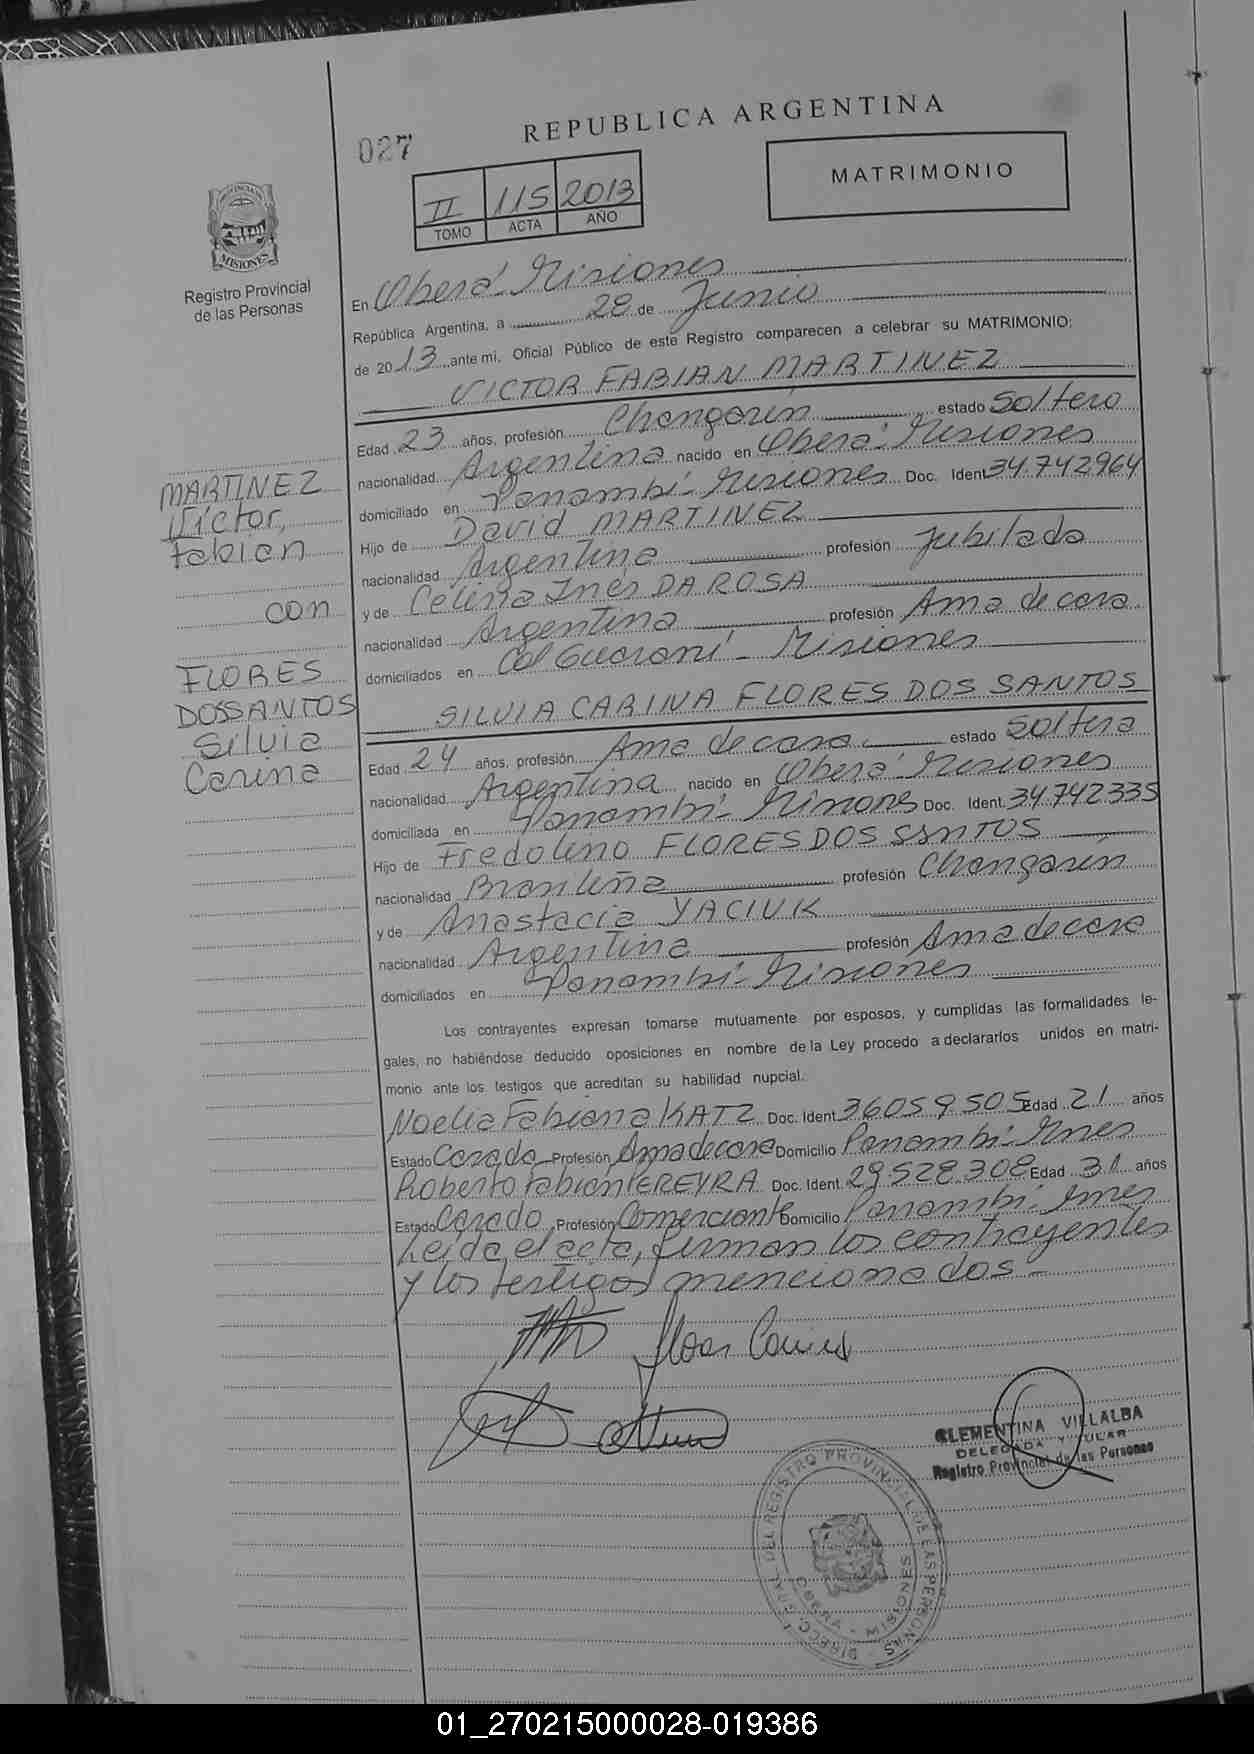 027
REPUBLICA ARGENTINA
MATRIMONIO
II 115 2013
TOMO ACTA AÑO
PROVINCIA
MISIONES
Registro Provincial
de las Personas
En Oberá Misiones
República Argentina, a 28 de Junio
de 2013 ante mi, Oficial Público de este Registro comparecen a celebrar su MATRIMONIO:
VICTOR FABIAN MARTINEZ
Edad 23 años, profesión Changarín estado Soltero
nacionalidad Argentina nacido en Oberá - Misiones
domiciliado en Panambí - Misiones Doc. Ident 34.742964
Hijo de David MARTINEZ
nacionalidad Argentina profesión Jubilado
y de Celina Inés DA ROSA
nacionalidad Argentina profesión Ama de casa
domiciliados en Col Guaraní - Misiones
SILVIA CARINA FLORES DOS SANTOS
Edad 24 años, profesión Ama de casa estado Soltera
nacionalidad Argentina nacido en Oberá Misiones
domiciliada en Panambí - Misiones Doc. Ident. 34.742335
Hijo de Fredolino FLORES DOS SANTOS
nacionalidad Brasileña profesión Changarín
y de Anastacia YACIUK
nacionalidad Argentina profesión Ama de casa
domiciliados en Panambí - Misiones
MARTINEZ
Víctor,
Fabian
con
FLORES
DOSSANTOS
Silvia
Carina
Los contrayentes expresan tomarse mutuamente por esposos, y cumplidas las formalidades le-
gales, no habiéndose deducido oposiciones en nombre de la Ley procedo a declararlos unidos en matri-
monio ante los testigos que acreditan su habilidad nupcial.
Noelia Fabiana KATZ Doc. Ident 36059505 Edad 21 años
Estado Casada Profesión Ama de casa Domicilio Panambí - Mnes
Roberto Fabian PEREYRA Doc. Ident. 29.528.308 Edad 31 años
Estado Casado Profesión Comerciante Domicilio Panambí - Mnes
Leída el acta, firman los contrayentes
y los testigos mencionados -
CLEMENTINA VILLALBA
DELEGADA TITULAR
Registro Provincial de las Personas
DIRECC. GRAL DEL REGISTRO PROVINCIAL DE LAS PERSONAS
MISIONES
01_270215000028-019386